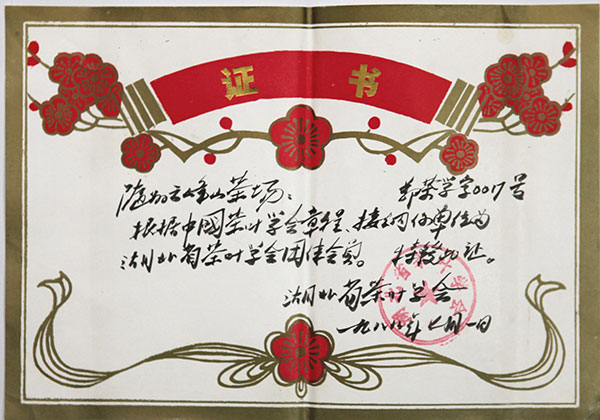 证书
随州云峰山茶场：
鄂茶学字0017号
根据中國茶叶学会章程、接纳你单位为
湖北省茶叶学会团体会员。特發此证。
湖北省茶叶学会
一九八八年七月一日